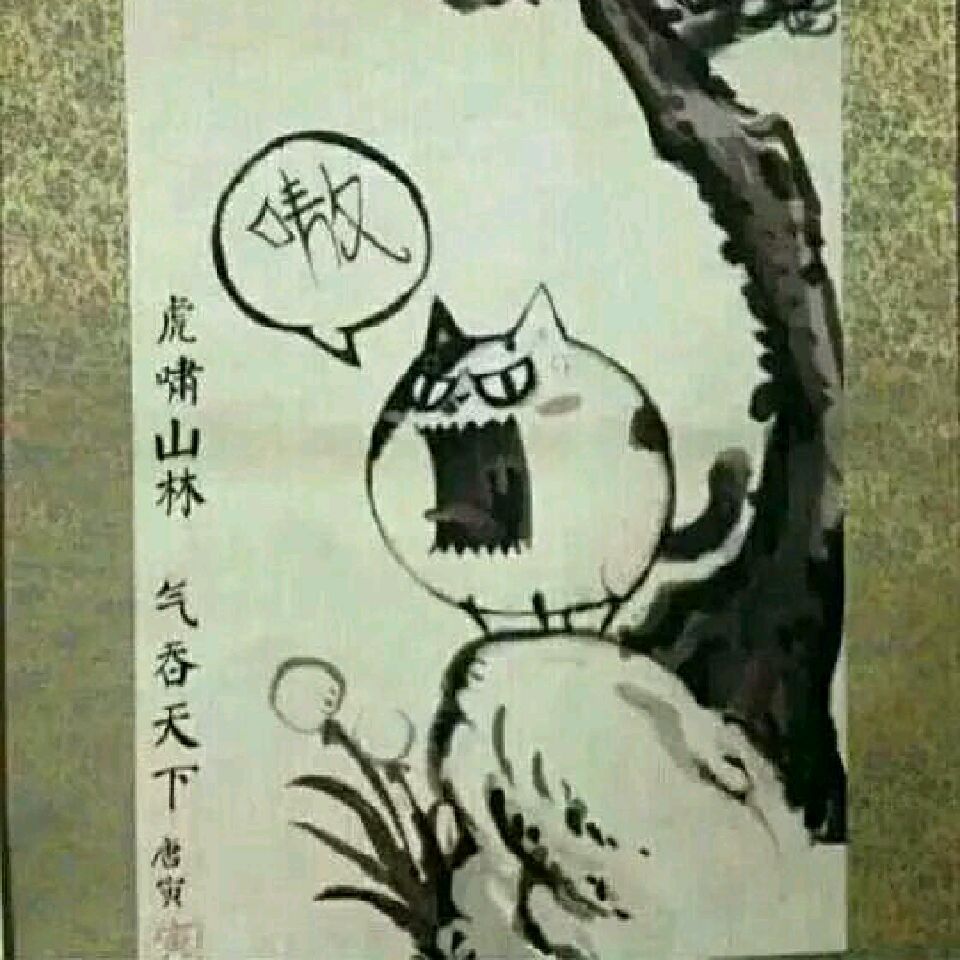 嗷
虎啸山林 气吞天下
唐寅